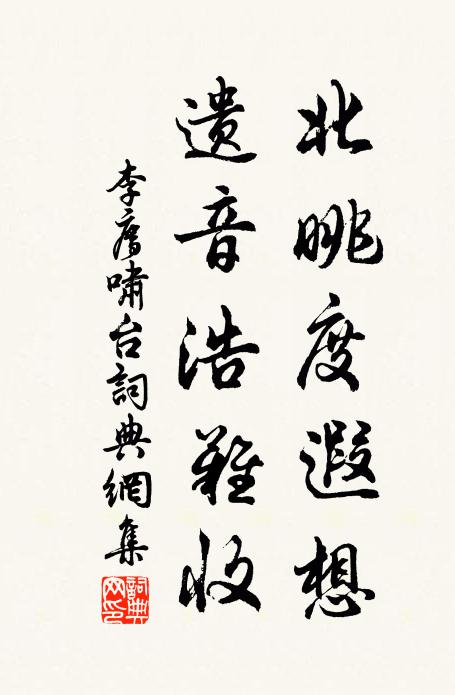 北眺度遐想
遺音浩難收
李廌嘯台詞典網集
詞典
网印